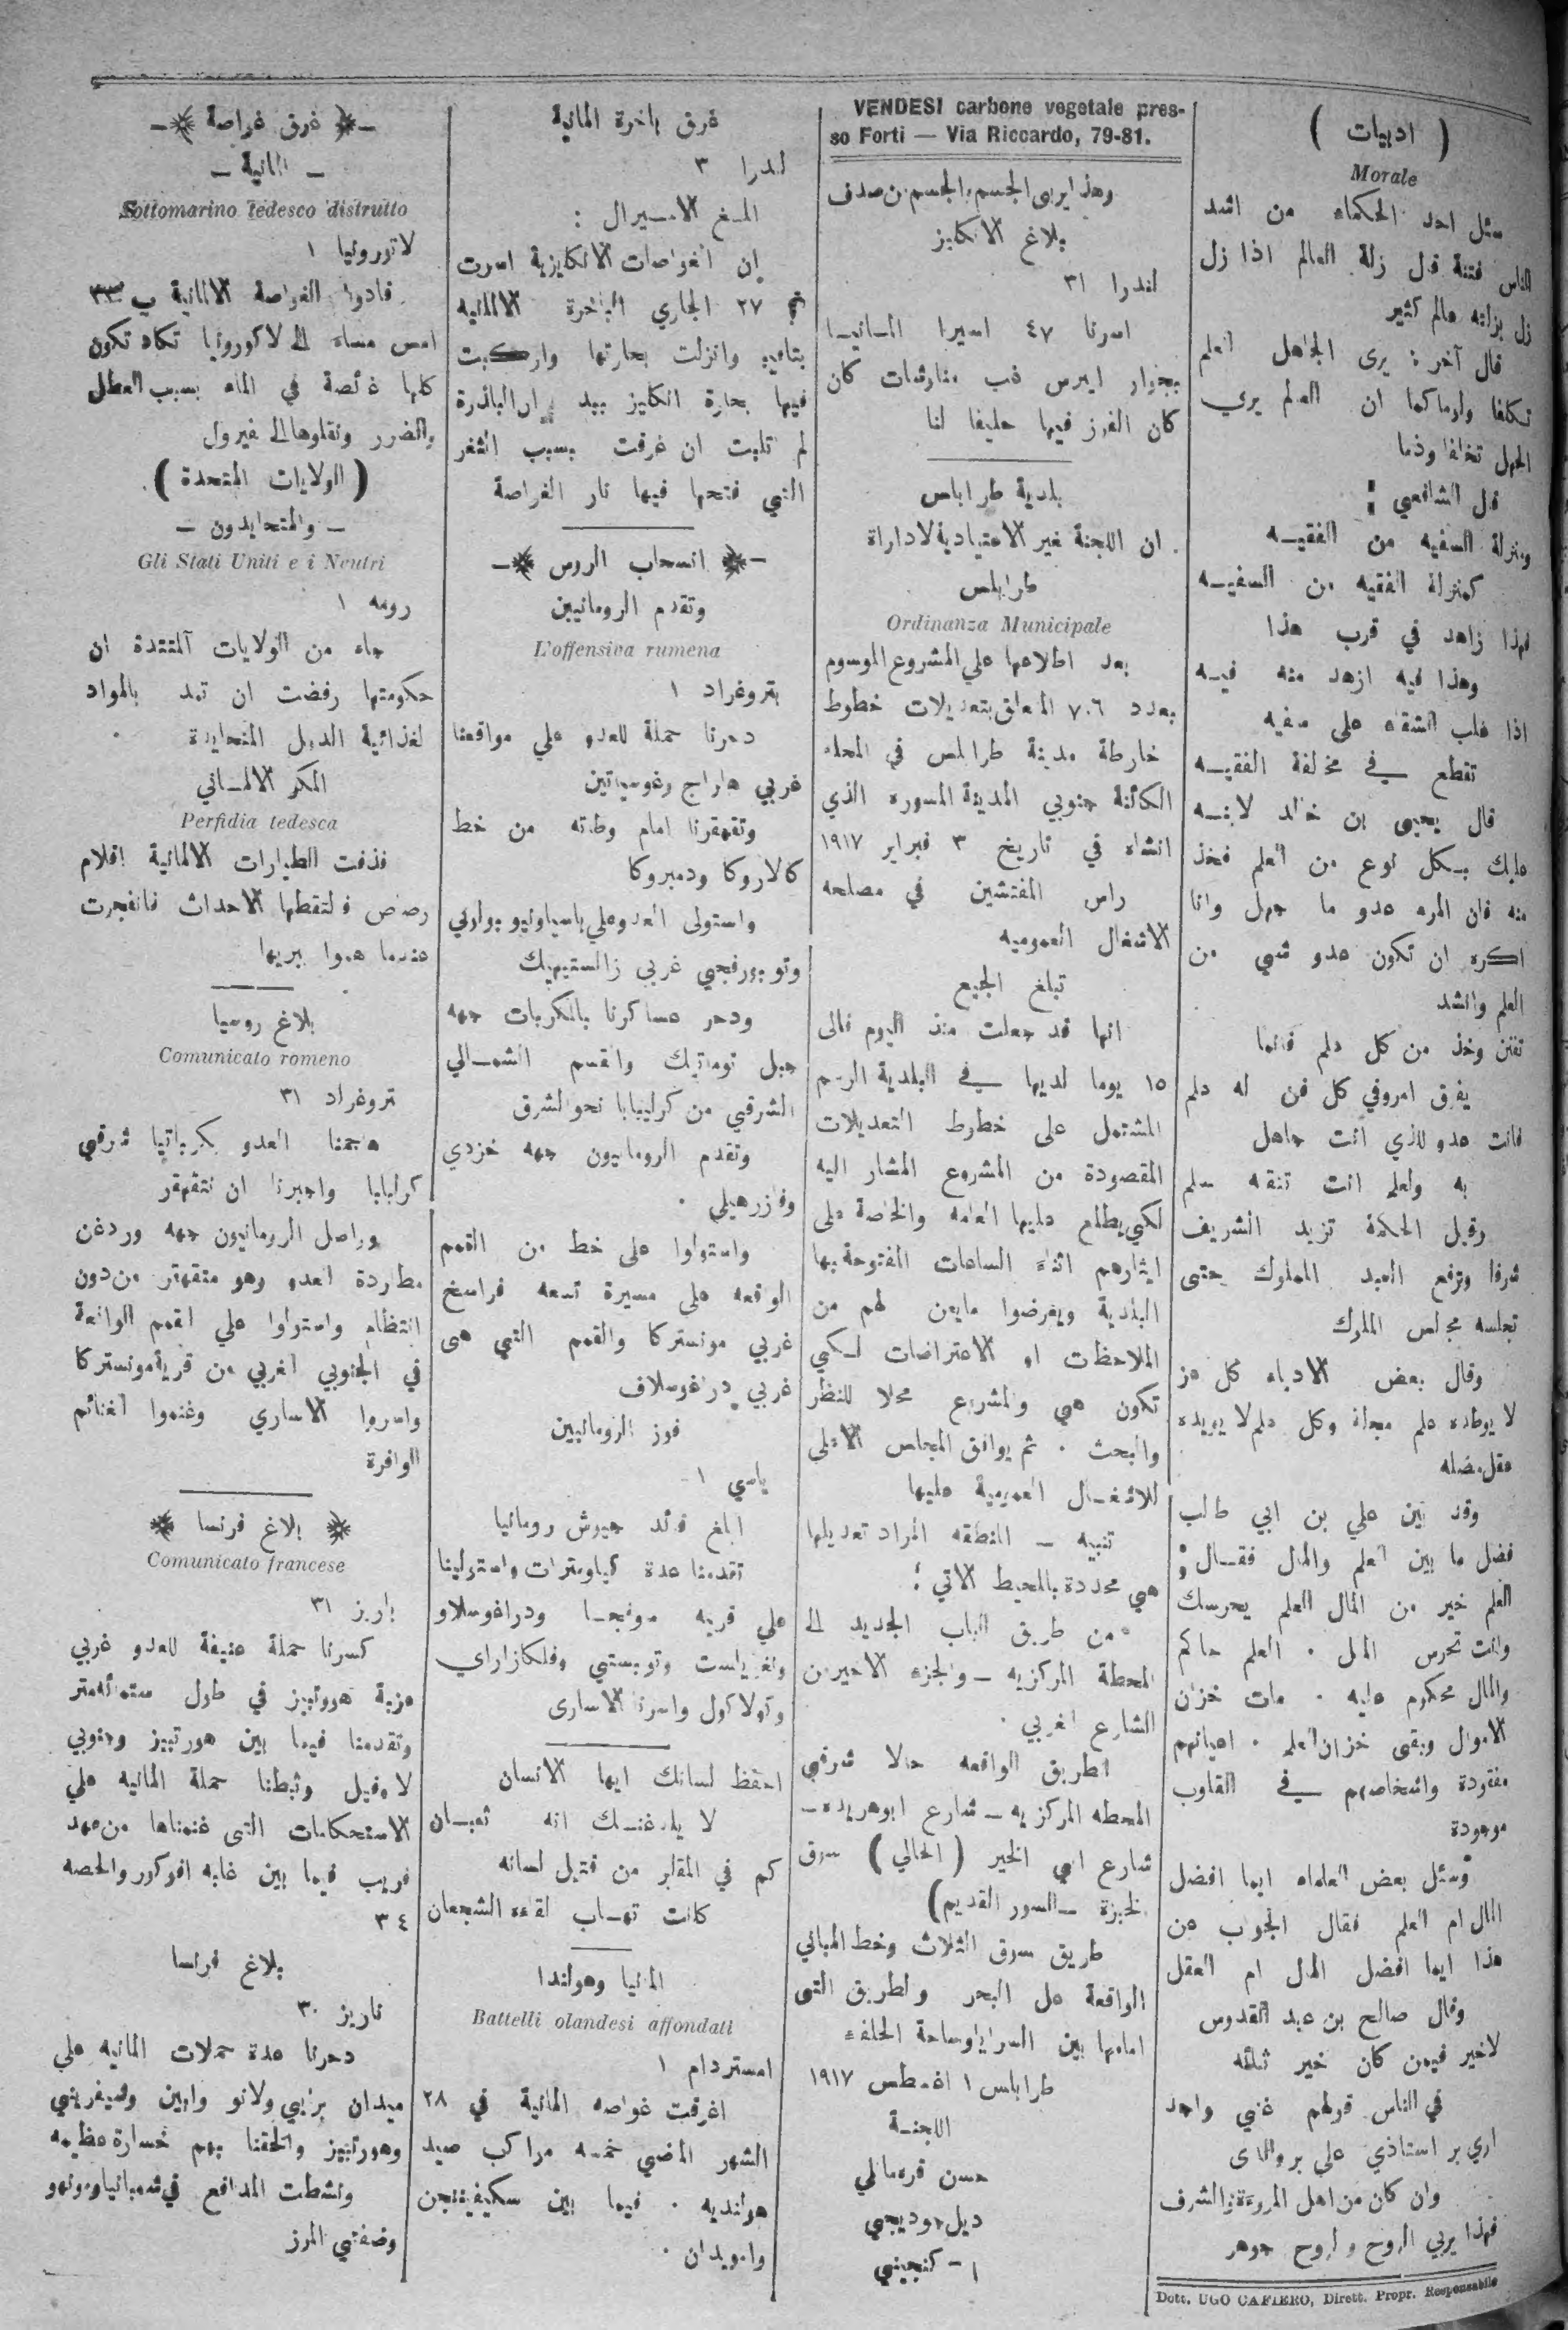 ( ادبيات )
Morale
سئل احد الحكماء من اشد
الناس فتنة قال زلة العالم اذا زل
زل بزلته عالم كثير
قال آخر : يرى الجاهل العلم
تكلفا ولوما كما ان العالم يرى
الجهل تخلفا وذما
قال الشافعي :
ومنزلة السفيه من الفقيـه
كمنزلة الفقيه من السفيـه
فهذا زاهد في قرب هذا
وهذا فيه ازهد منه فيـه
اذا غلب الشقاء على سفيه
تقطع في مخالفة الفقيـه
قال يحيى بن خالد لابنـه
عليك بـكل نوع من العلم فخذ
منه فان المرء عدو ما جهل وانا
اكره ان تكون عدو شي من
العلم وانشد
تفنن وخذ من كل علم فانما
يفوق امروفي كل فن له علم
فانت عدو للذي انت جاهل
به ولعلم انت تتقنه سلم
وقيل الحكمة تزيد الشريف
شرفا وترفع العبد المملوك حتى
تجلسه مجالس الملوك
وقال بعض الادباء كل عز
لا يوطده علم مذلة وكل علم لا يويده
عقل مضله
وقد بين علي بن ابي طالب
فضل ما بين العلم والمال فقـال :
العلم خير من المال العلم يحرسك
وانت تحرس المال . العلم حاكم
والمال محكوم عليه . مات خزان
الاموال وبقى خزان العلم . اعيانهم
مفقودة واشخاصهم في القلوب
موجودة
وسئل بعض العلماء ايما افضل
المال ام العلم فقال الجواب عن
هذا ايما افضل المال ام العقل
وقال صالح بن عبد القدوس
لاخير فيمن كان خير ثنائه
في الناس قولهم غني واجد
اري بر استاذي علي بر والدى
وان كان من اهل المروءة والشرف
فهذا يربي الروح والروح جوهر
Dott. UGO CAFIERO, Dirett. Propr. Responsabile
VENDESI carbone vegetale pres-
so Forti — Via Riccardo, 79-81.
وهذا يربى الجسم والجسم من صدف
بلاغ الانكليز
لندرا ٣١
اسرنا ٤٧ اسيرا المـانيـا
بجوار ايبرس غب مناوشات كان
كان الفوز فيها حليفا لنا
بلدية طرابلس
ان اللجنة غير الاعتيادية لاداراة
طرابلس
Ordinanza Municipale
بعد اطلاعها علي المشروع الموسوم
بعدد ٧٠٦ المعلق بتعديلات خطوط
خارطة مدينة طرابلس في المحله
الكائنة جنوبي المدينة المسوره الذي
انشاه في تاريخ ٣ فبراير ١٩١٧
راس المفتشين في مصلحه
الاشغال العموميه
تبلغ الجميع
انها قد جعلت منذ اليوم فالى
١٥ يوما لديها في البلدية الرسم
المشتمل على خطوط التعديلات
المقصودة من المشروع المشار اليه
لكي يطلع عليها العامه والخاصة على
ايثارهم اثناء الساعات المفتوحة بها
البلدية ويعرضوا مايعن لهم من
الملاحظات او الاعتراضات لـكي
تكون هي والمشروع محلا للنظر
والبحث . ثم يوافق المجلس الاعلى
للاشغـال العمومية عليها
تنبيه - المنطقه المراد تعديلها
هي محددة بالمحيط الاتي :
من طريق الباب الجديد الى
المحطة المركزيه - والجزء الاخير من
الشارع الغربي .
الطريق الواقعه حالا شرقي
المحطه المركزيه - شارع ابوهريده -
شارع ابي الخير ( الحالي ) سوق
الخبزة - السور القديم)
طريق سوق الثلاث وخط المباني
الواقعة على البحر والطريق التى
امامها بين السرايا وساحة الحلفاء
طرابلس ١ اغسطس ١٩١٧
اللجنـة
حسن قرمانلي
ديل
ا - كنجيني
غرق باخرة المانية
لندرا ٣
ابلـغ الاميرال :
ان الغواصات الانكليزية اسرت
في ٢٧ الجاري الباخرة الالمانيه
وانزلت بحارتها واركبت
فيها بحارة انكليز بيد ان الباخرة
لم تلبث ان غرقت بسبب الثغر
التي فتحتها فيها نار الغواصة
انسحاب الروس
وتقدم الرومانيين
L'offensiva rumena
بتروغراد ١
دحرنا حملة للعدو علي مواقعنا
غربي هاراج وغوسياتين
وتقهقرنا امام وطاته من خط
كالاروكا ودمبروكا
واستولى العدو علي باسياوليو
غربي زالستيهيك
ودحر عساكرنا بالكربات جهه
جبل توماتيك والقسم الشمـالي
الشرقي من كرليبابا نحو الشرق
وتقدم الرومانيون جهه خزدي
وفازرهيلي .
واستولوا على خط من القمم
الواقعه على مسيرة تسعه فراسخ
غربي مونستركا والقمم التي هى
غربي دراغوسلاف
فوز الرومانيين
ياسي ١
ابلغ قائد جيوش رومانيا
تقدمنا عدة كيلومترات واستولينا
علي قريه مونجـا ودراغوسلاو
وتوبستي وفلكازاراي
واسرنا الاسارى
احفظ لسانك ايها الانسان
لا يلدغنـك انه ثعبـان
كم في المقابر من قتيل لسانه
كانت تهـاب لقاءه الشجعان
المانيا وهولندا
Battelli olandesi affondati
امستردام ١
اغرقت غواصه المانية في ٢٨
الشهر الماضي خمسه مراكب صيد
هولنديه . فيما بين سكيفينجن
وامويدان .
غرق غواصة
- المانية -
Sottomarino tedesco distrutto
لاتورونيا ١
قادوا الغواصة الالمانية ب ٢٣
امس مساء الى لاكورونيا تكاد تكون
كلها غائصة في الماء بسبب العطل
والضرر ونقلوها الى فيرول
( الولايات المتحدة ) .
- والمتحايدون -
Gli Stati Uniti e i Neutri
رومه ١
جاء من الولايات المتتدة ان
حكومتها رفضت ان تمد بالمواد
لغذائية الدول المتحايدة .
المكر الالمـاني
Perfidia tedesca
قذفت الطيارات الالمانية اقلام
رصاص فالتقطها الاحداث فانفجرت
عندما هموا ببريها
بلاغ روسيا
Comunicato romeno
بتروغراد ٣١
هاجمنا العدو بكرباتيا شرقي
كرلبابا واجبرنا ان نتقهقر
وواصل الرومانيون جهه وردغن
مطاردة العدو وهو متقهقر من دون
انتظام واستولوا علي القمم الواقعة
في الجنوبي الغربي من قرية مونستركا
واسروا الاساري وغنموا الغنائم
الوافرة
بلاغ فرنسا
Comunicato francese
باريز ٣١
كسرنا حملة عنيفة للعدو غربي
عزبة هورتبيز في طول ستمائه متر
وتقدمنا فيما بين هورتبيز وجنوبي
لا وفيل وثبطنا حملة المانيه علي
الاستحكامات التى غنمناها من عهد
قريب فيما بين غابه افوكور والحصه
٣٠٤
بلاغ فرنسا
تاريز ٣٠
دحرنا عدة حملات المانيه علي
ميدان برايي ولانو وايبن وشيفريني
وهورتبيز والحقنا بهم خسارة عظيمه
ونشطت المدافع في شمبانيا ومونهو
وضفتي الموز